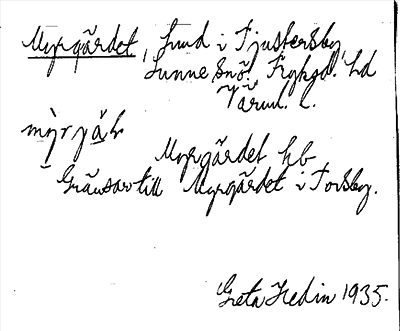 Myrgärdet, Lund i Tjustersby,
Sunne snö. Fryksd. hd
Värml. l.
Myrgärdet hb.
Gränsar till Myrgärdet i Torsby.
Greta Hedin 1935.